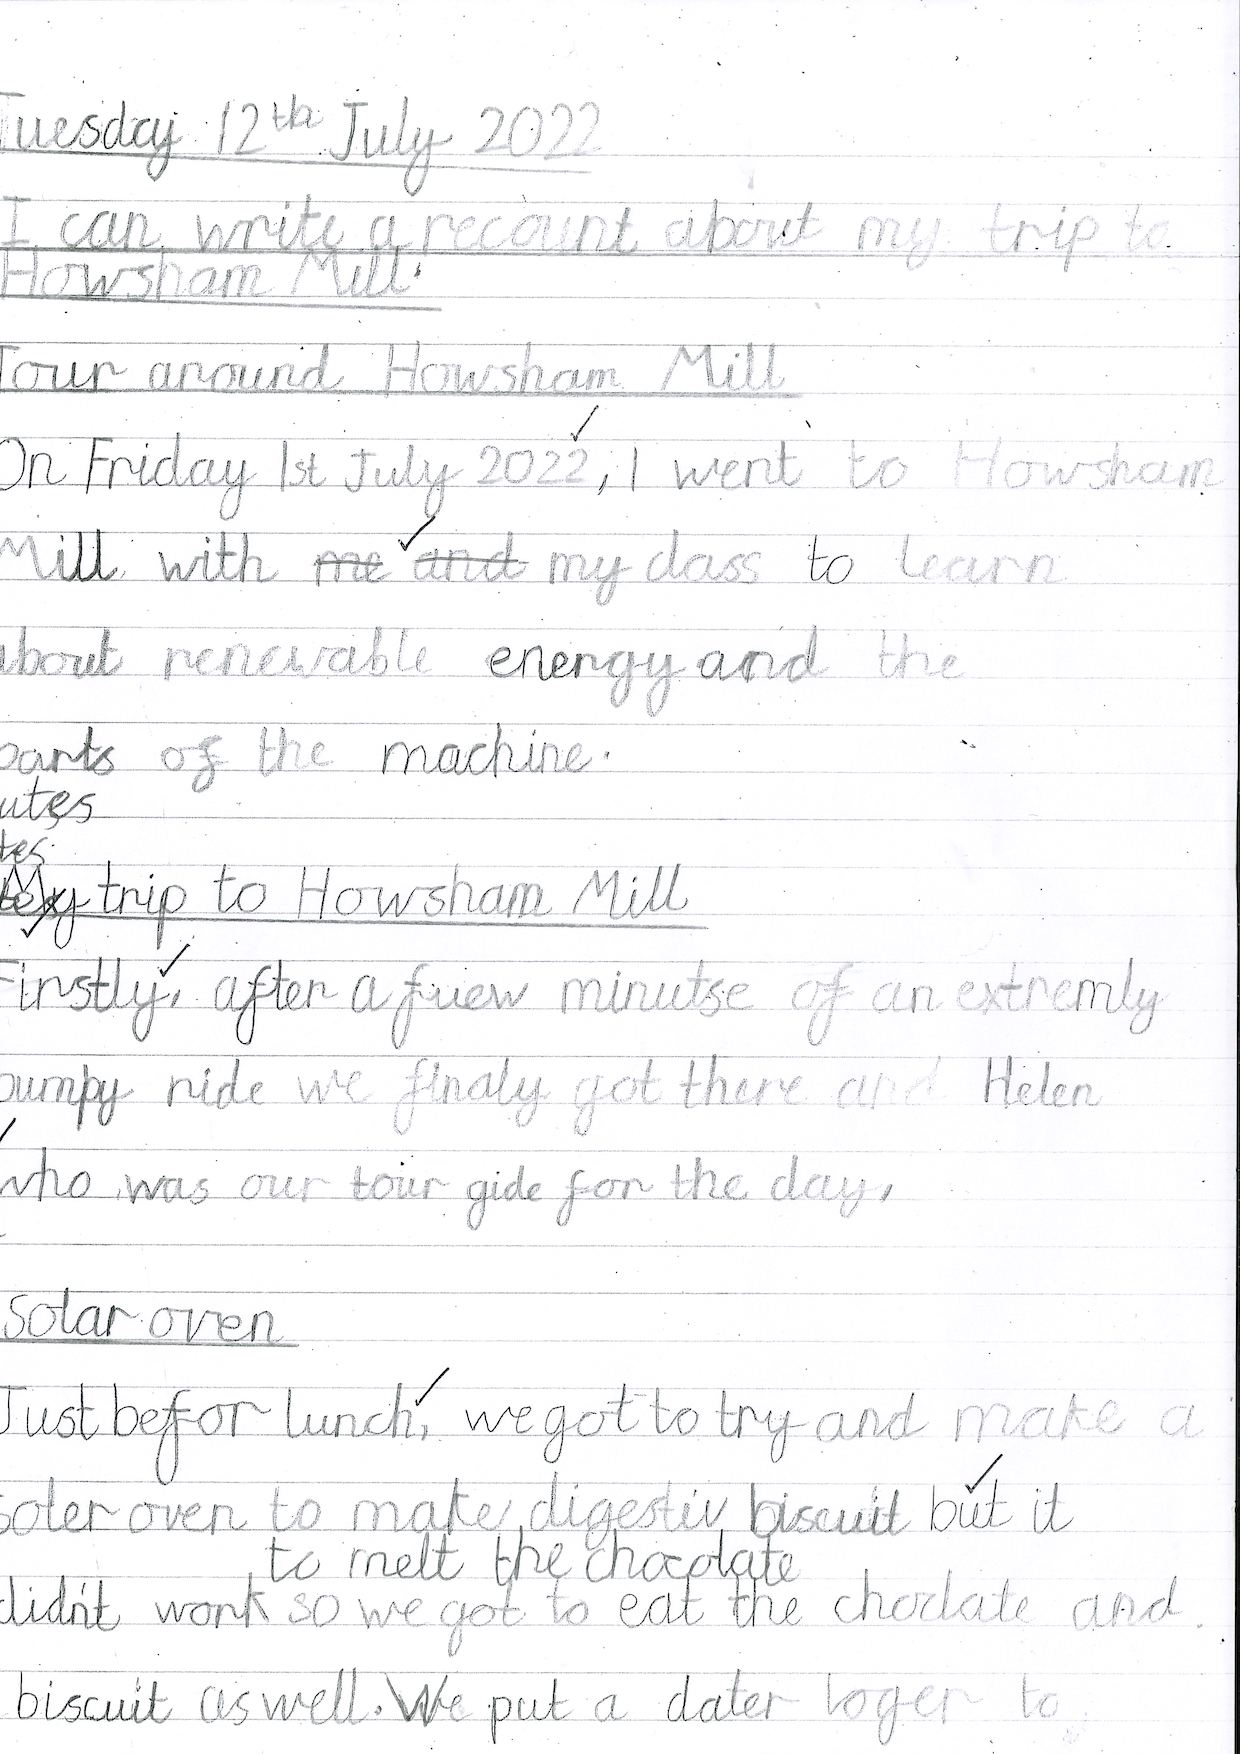 Tuesday 12th July 2022
I can write a recount about my trip to
Howsham Mill.
Tour around Howsham Mill
On Friday 1st July 2022, I went to Howsham
Mill with me and my class to learn
about renewable energy and the
parts of the machine.
utes
tes
My trip to Howsham Mill
Firstly, after a fuew minutse of an extremly
bumpy ride we finaly got there and Helen
who was our tour gide for the day,
Solar oven
Just befor lunch, we got to try and make a
soler oven to make digestiv biscuit but it
to melt the chocolate
didn't work so we got to eat the choclate and
biscuit as well. We put a dater loger to